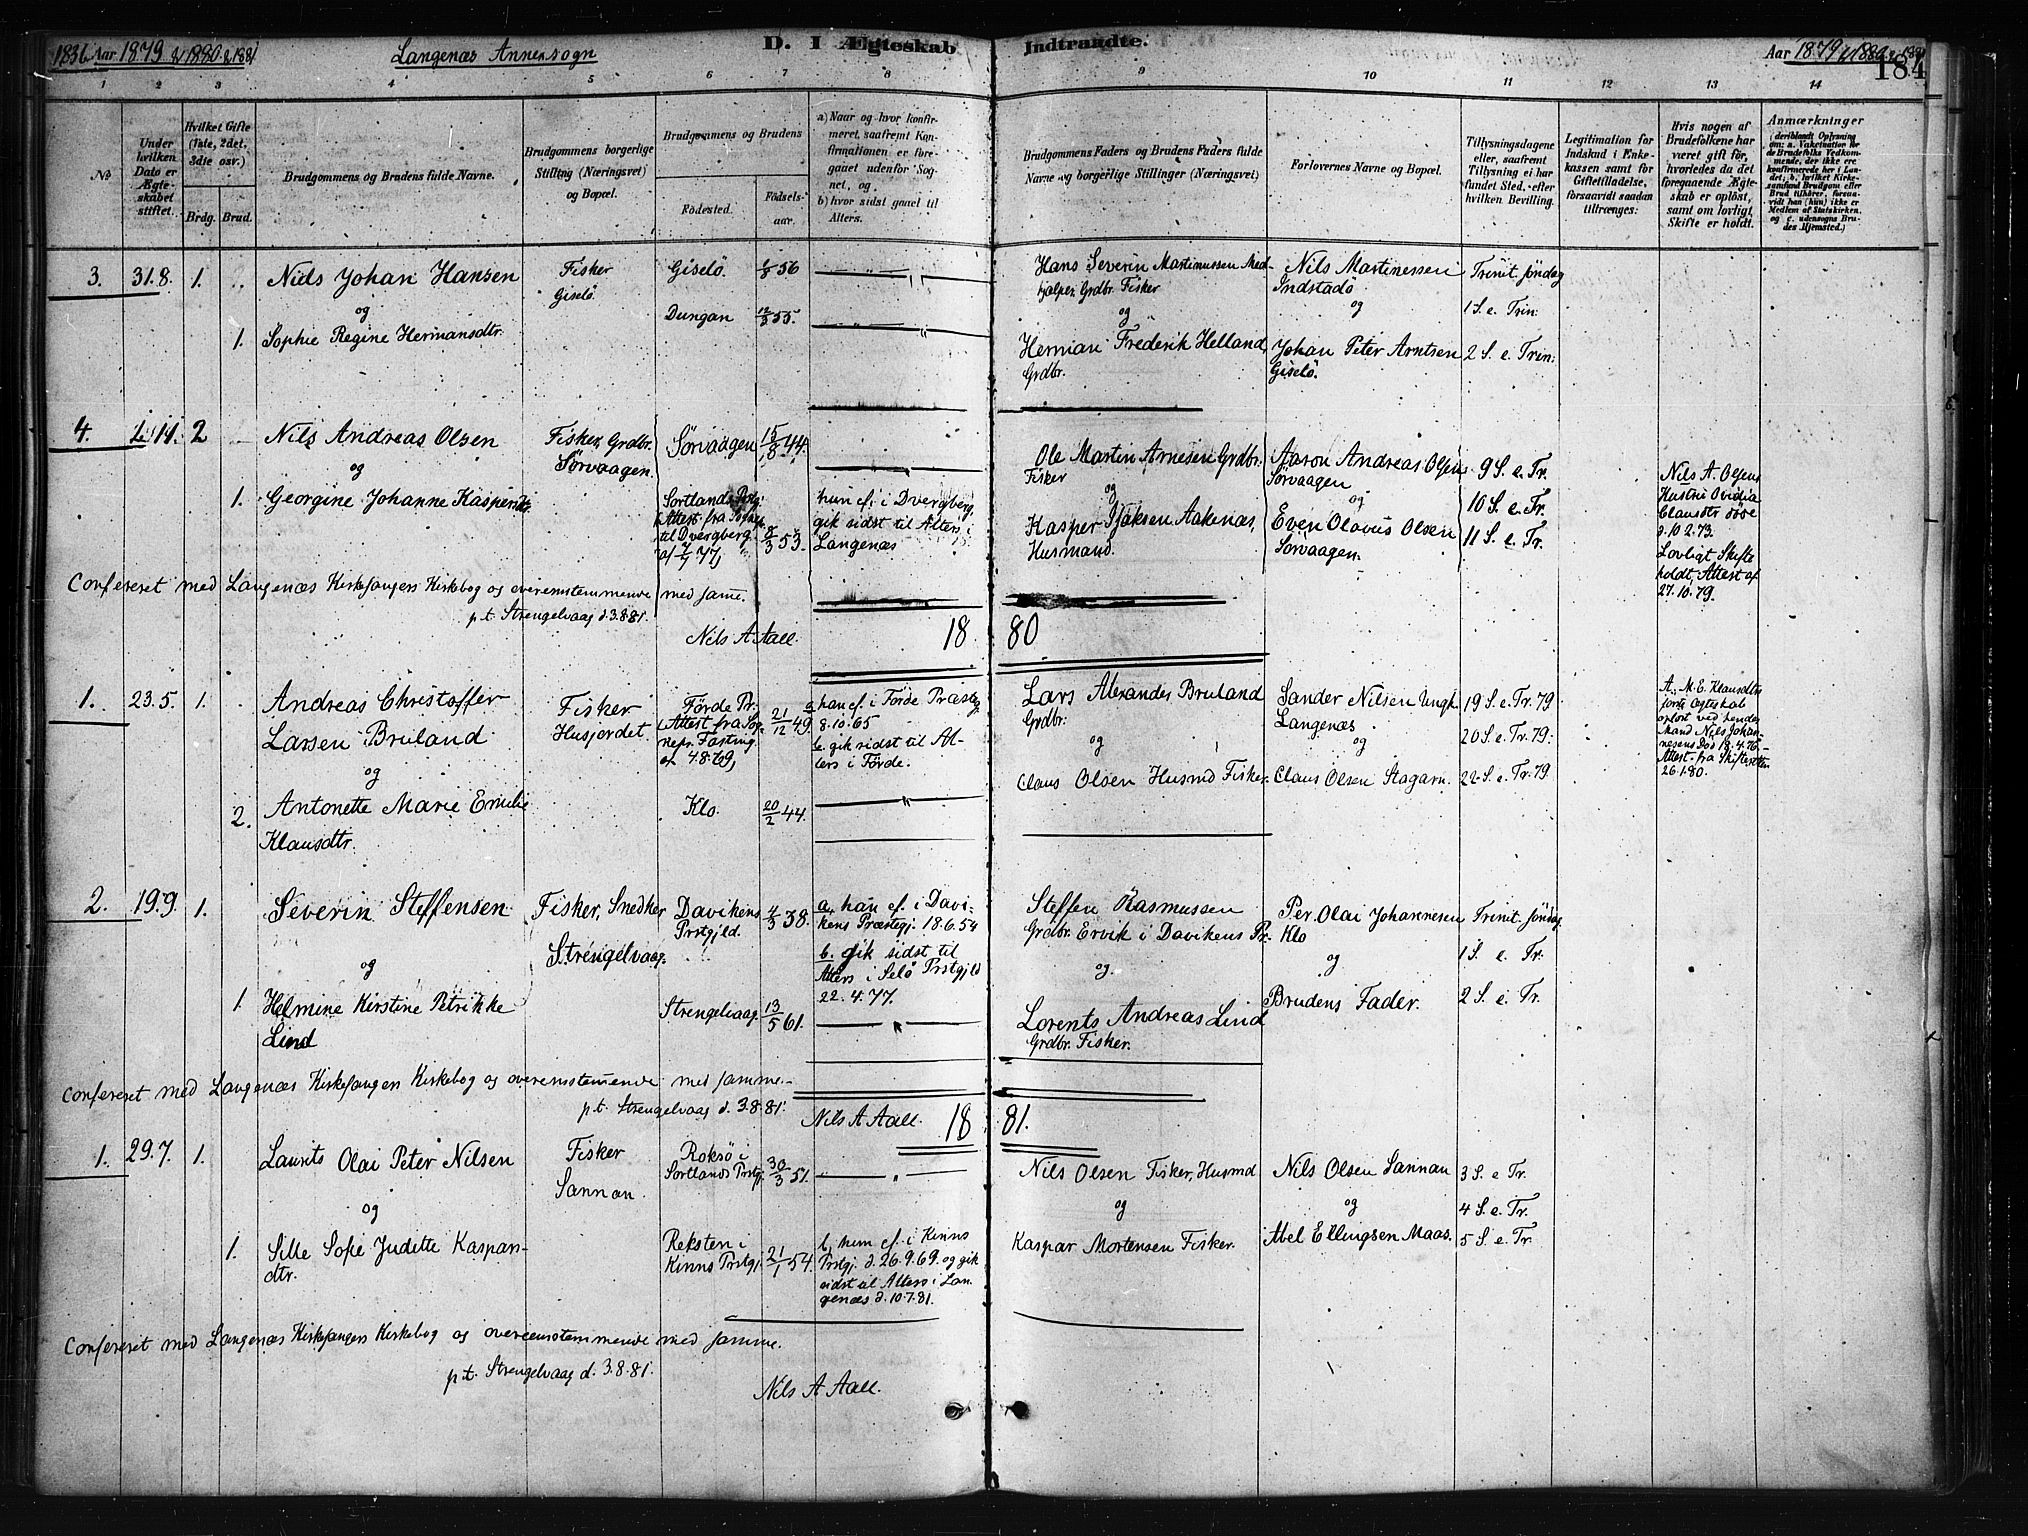 1836 Aar 1879 & 1880 & 1881
Langenæs Annexsogn
D. I Ægteskab Indtrandte.
Aar 1879 & 1880 & 1881
184
1 2 3 4 5 6 7 8 9 10 11 12 13 14
No
Under hvilken Dato er Ægteskabet stiftet.
Hvilket Gifte (1ste, 2det, 3die osv.)
Brdg. Brud.
Brudgommens og Brudens fulde Navne.
Brudgommens borgerlige Stilling (Næringsvei) og Bopæl.
Brudgommens og Brudens
Födested.
Födselsaar.
a) Naar og hvor konfirmeret, saafremt Konfirmationen er foregaaet udenfor Sognet, og
b) hvor sidst gaaet til Alters.
Brudgommens Faders og Brudens Faders fulde Navne og borgerlige Stillinger (Næringsvei)
Forlovernes Navne og Bopæl.
Tillysningsdagene eller, saafremt Tillysning ei har fundet Sted, efter hvilken Bevilling.
Legitimation for Indskud i Enkekassen samt for Giftetilladelse, forsaavidt saadan tiltrænges:
Hvis nogen af Brudefolkene har været gift för, hvorledes da det foregaaende Ægteskab er oplöst, samt om lovligt Skifte er holdt.
Anmærkninger
(deriblandt Oplysning om: a. Vakcination for de Brudefolks Vedkommende, der ikke ere konfirmerede her i Landet; b. hvilket Kirkesamfund Brudgom eller Brud tilhörer, forsaavidt han (hun) ikke er Medlem af Statskirken, og c. udensogns Brudes Hjemsted.)
3. 31.8. 1. Niels Johan Hansen
og
1. Sophie Regine Hermansdtr.
Fisker
Giselö.
Giselö. 1/8 56
Dungan 12/3 55.
Hans Severin Martinussen Medhjelper, Grdbr. Fisker
og
Herman Frederik Helland,
Grdbr.
Nils Martinessen
Indstadö
og
Johan Peter Arntsen
Giselö.
Trinit. Söndag
1 S. e. Trin:
2 S. e. Trin:
4. 2.11. 2 Nils Andreas Olsen
og
1. Georgine Johanne Kaspersdtr.
Fisker, Grdbr.
Sörvaagen.
Sörvaagen 15/8 44.
Sortlands Pstg:
(Attest fra Sognepr.
til Dvergberg
af 7/7 77) 8/3 53.
hun cf. i Dvergberg,
gik sidst til Alters i
Langenæs
Ole Martin Arnesen Grdbr.
Fisker
og
Kasper Isaksen Aakenæs,
Husmand.
Aaron Andreas Olsen
Sörvaagen
og
Even Olavus Olsen
Sörvaagen.
9 S. e. Tr.
10 S. e. Tr.
11 S. e. Tr.
Nils A. Olsens
Hustru Ovidia
Clausdtr döde
d. 10.2.73.
Lovligt Skifte
holdt, Attest af
27.10.79.
Confereret med Langenæs Kirkesangers Kirkebog og overensstemmende med samme.
p.t. Strengelvaag d. 3.8.81.
Nils A Aall.
1880
1. 23.5. 1. Andreas Christoffer
Larsen Bruland
og
2. Antonette Marie Emilie
Klausdtr.
Fisker
Husjordet.
Förde Pr.
(Attest fra Sognepr. Fasting
af 4.8.69) 21/12 49.
Klo. 20/2 44.
a han cf. i Förde Præstegj.
8.10.65
b. gik sidst til Alters i Förde.
Lars Alexander Bruland
Grdbr:
og
Claus Olsen Husmd Fisker.
Sander Nilsen Vingh
Langenæs
og
Claus Olsen Stagarn.
19 S. e. Tr. 79
20 S. e. Tr. 79.
22 S. e. Tr. 79
A. M. E. Klausdtrs
förste Ægteskab
oplöst ved hendes
Mand Nils Johannesens Död 18.4.76 –
Attest fra Skifteretten
26.1.80.
2. 19.9. 1. Severin Steffensen
og
1. Helmine Kirstine Petrikke
Lind
Fisker, Snedker
Strengelvaag.
Davikens
Prstgjld. 4/3 38.
Strengelvaag. 13/5 61.
a, han cf. i Davikens Præstegj. 18.6.54
b. gik sidst til
Alters i Selö Prstgjld
22.4.77.
Steffen Rasmussen
Grdbr. Ervik i Davikens Pr.
og.
Lorents Andreas Lind
Grdbr. Fisker.
Per Olai Johannesen
Klo
og
Brudens Fader.
Trinit. Söndag
1 S. e. Tr.
2 S. e. Tr.
Confereret med Langenæs Kirkesangers Kirkebog og overensstemmende med samme.
p.t. Strengelvaag d. 3.8.81.
Nils A Aall.
1881.
1. 29.7. 1. Laurits Olai Peter Nilsen
og
1. Sille Sofie Judette Kaspardtr.
Fisker
Sannan.
Roksö i
Sortlands Prstgj. 30/3 51.
Reksten i
Kinns Prstgj. 21/1 54.
b, hun cf. i Kinns
Prstgj. d. 26.9.69. og gik
sidst til Alters i Langenæs d. 10.7.81.
Nils Olsen Fisker, Husmd
og
Kaspar Mortensen Fisker.
Nils Olsen Sannan
og
Abel Ellingsen Maas.
3 S. e Tr.
4 S. e. Tr.
5 S. e. Tr.
Confereret med Langenæs Kirkesangers Kirkebog og overensstemmende med samme.
p.t. Strengelvaag d. 3.8.81.
Nils A Aall.